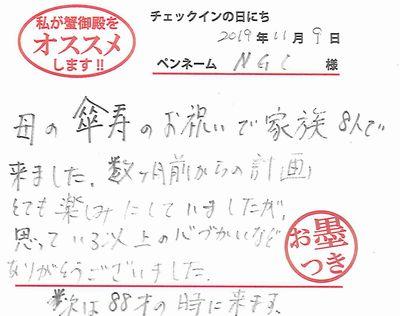 私が蟹御殿を
オススメ
します!!
チェックインの日にち
2019年11月9日
ペンネーム NGC 様
母の傘寿のお祝いで家族8人で
来ました。数ヶ月前からの計画
とても楽しみにしていましたが、
思っている以上の心づかいなど
ありがとうございました。
次は88才の時に来ます。
お墨
つき